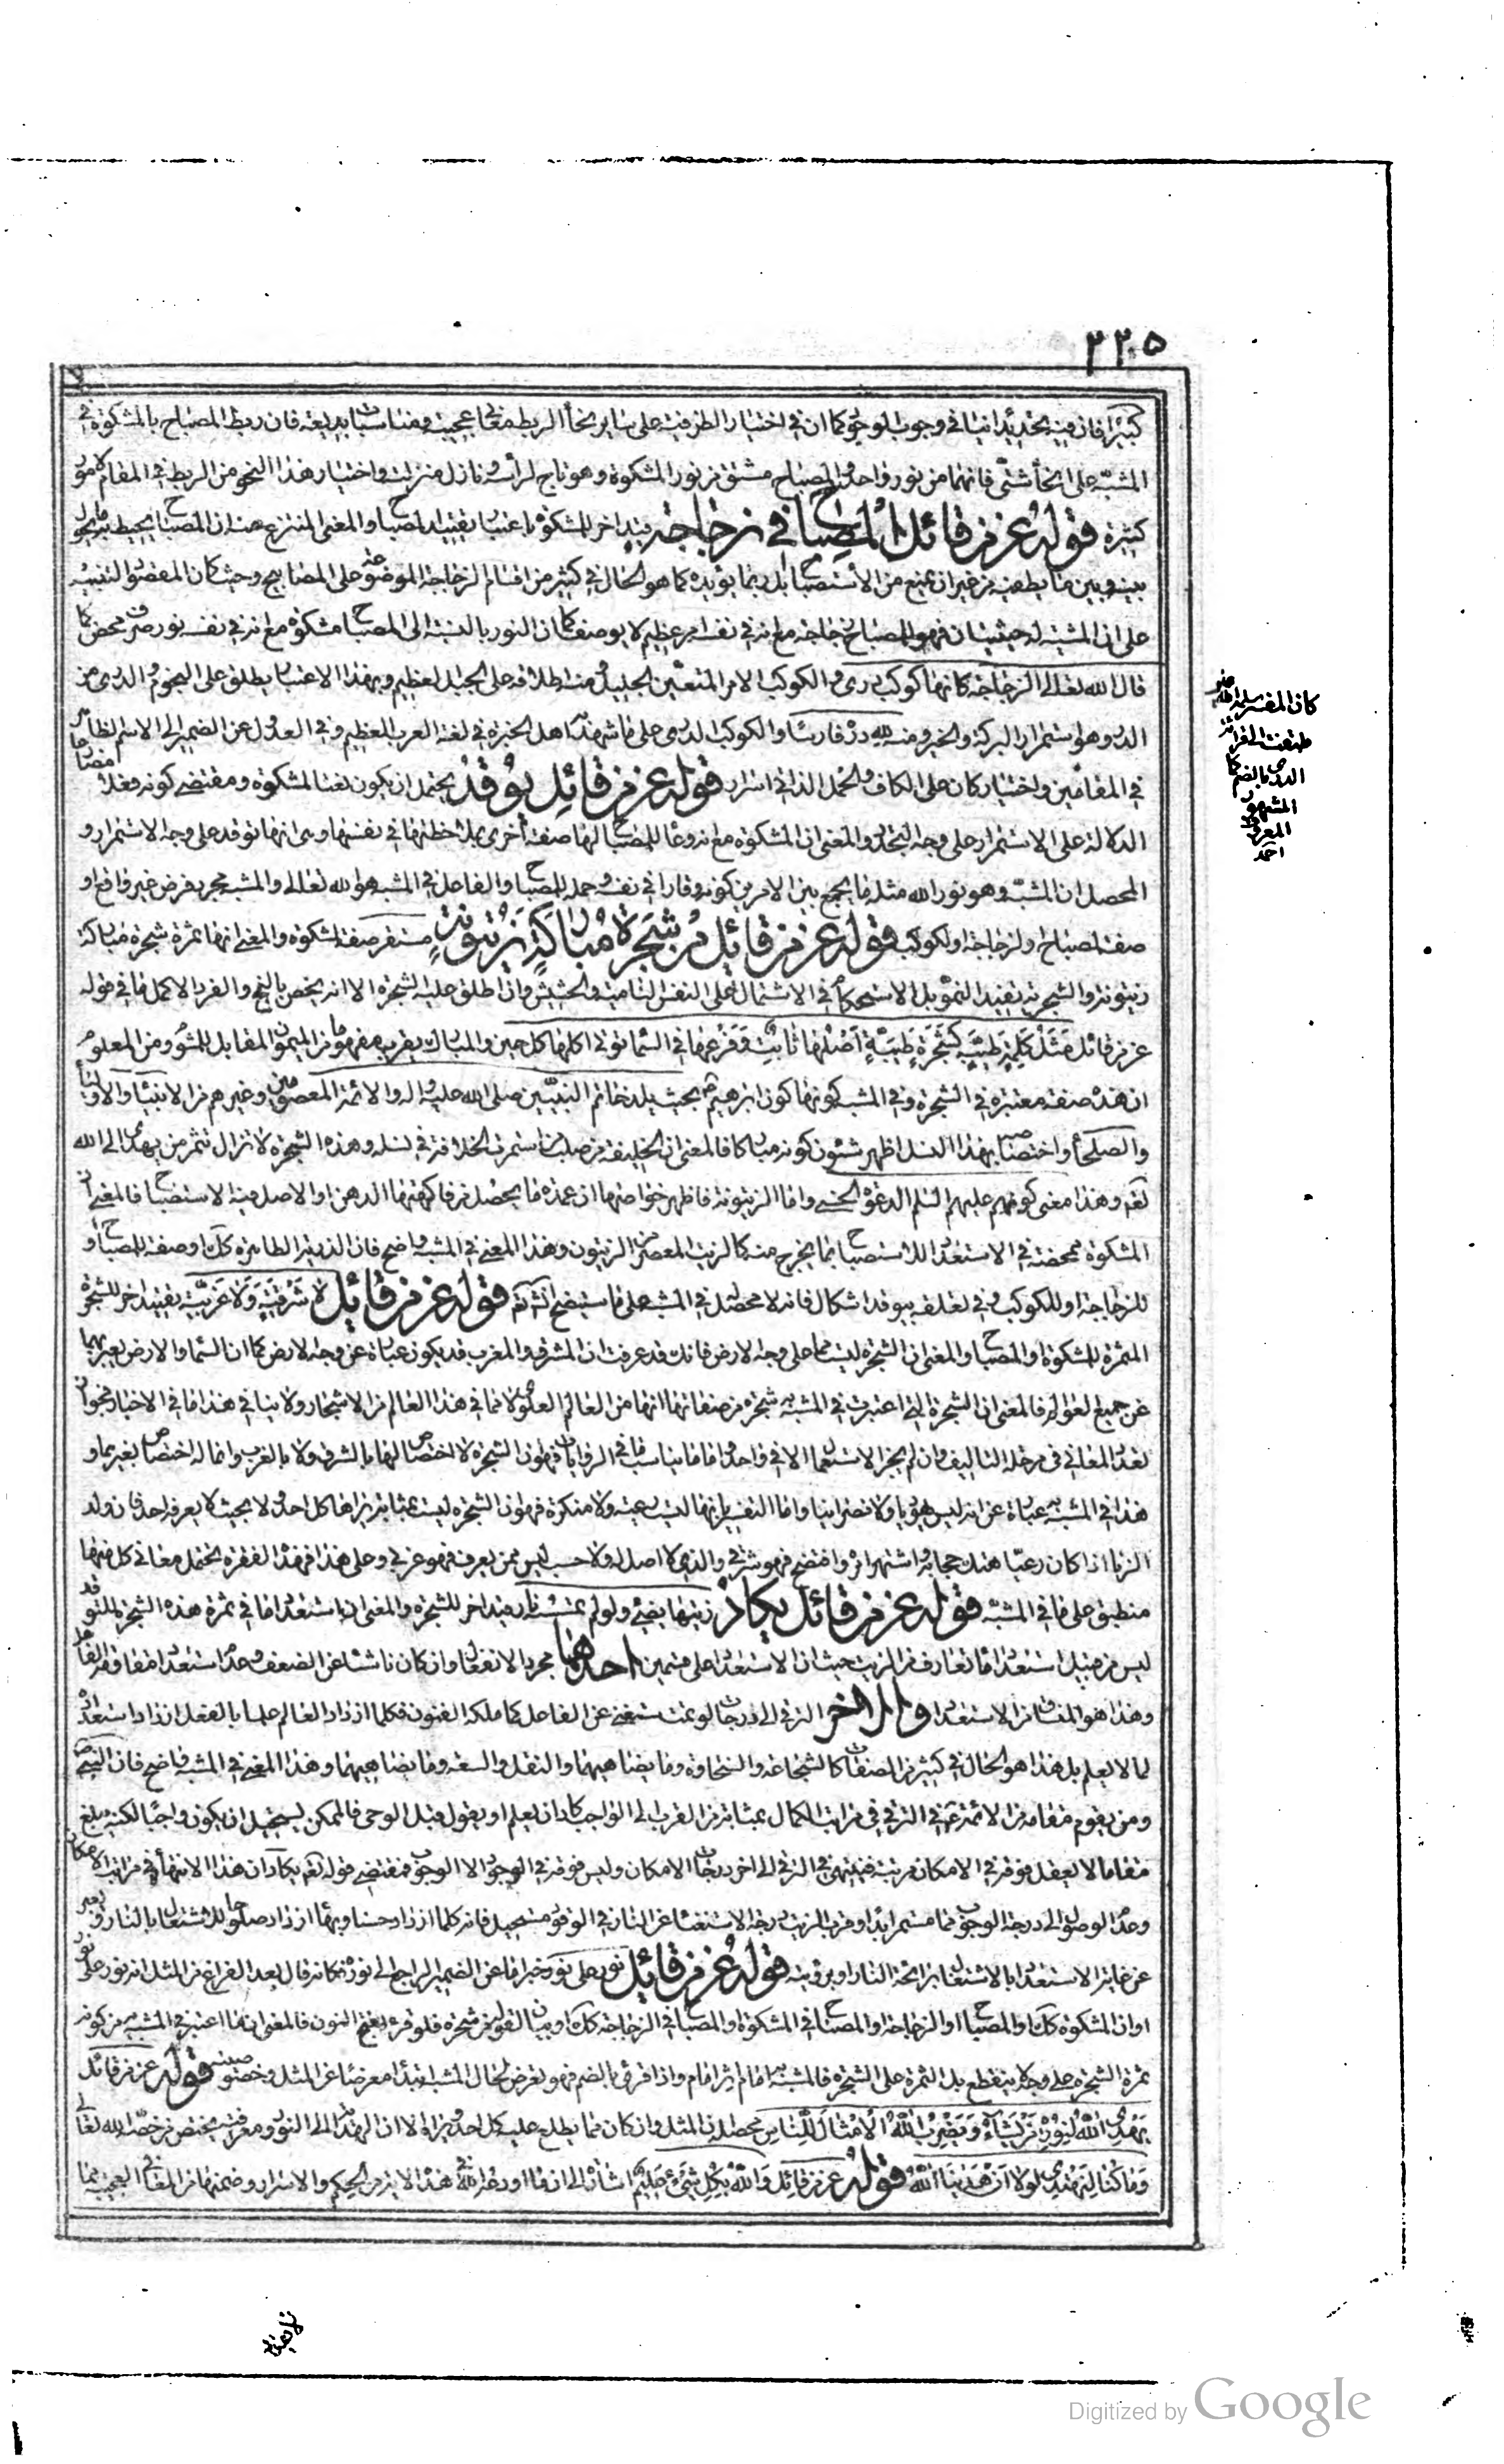 ٣٢٥
كثيرا فان فيه تحديدا ينافي وجوب الوجود كما ان في اختيار الظرفية على ساير انحاء الربط معاني عجيبة ومناسبات بديعة فان ربط المصباح بالمشكوة في
المشبه على انحاء شتى فانهما من نور واحد والمصباح مشتق من نور المشكوة وهو تاج لرأسه ونازل منزلته واختيار هذا النحو من الربط في المقام لامور
كثيرة قوله عز من قائل المصباح في زجاجة قيد اخر للمشكوة باعتبار تقييد المصباح والمعنى المنتزع منه ان المصباح يحيط به ما يحول
بينه وبين ما يطفيه من غير ان يمنع من الاستصباح بل ربما يؤيده كما هو الحال في كثير من اقسام الزجاجة الموضوعة على المصابيح وحيث كان المقصود التنبيه
على ان المشبه له حيثيتان فهو المصباح زجاجة مع انه في نفسه امر عظيم لا يوصف كما ان النور بالنسبة الى المصباح مشكوة مع انه في نفسه نور صرف محض كما
قال الله تعالى الزجاجة كانها كوكب دري والكوكب الامر المتعين الجليل ومنه اطلاقه على الجبل العظيم وبهذا الاعتبار يطلق على النجوم والدري من
الدر وهو استمرار البركة والخير ومنه لله دره فارسا والكوكب الدري على ما شهد به اهل الخبرة في لغة العرب العظيم وفي العدول عن الضمير الى الاسم الظاهر
في المقامين واختيار كان على الكاف والحمل الذاتي اسرار قوله عز من قائل يوقد يحتمل ان يكون نعتا للمشكوة ومقتضى كونه فعلا مضارعا
الدلالة على الاستمرار على وجه التجدد والمعنى ان المشكوة مع انه وعاء للمصباح لها صفة أخرى بملاحظتها في نفسها وهي انها توقد على وجه الاستمرار و
المحصل ان المشبه وهو نور الله مثله ما يجمع بين الامرين كونه وقادا في نفسه وحمله للمصباح والفاعل في المشبه هو الله تعالى والمشبه مجرد فرض غير واقع او
صفة المصباح او الزجاجة او الكوكب قوله عز من قائل من شجرة مباركة زيتونة مستقر صفة للمشكوة والمعنى انها ثمرة شجرة مباركة
زيتونة والشجرية تفيد النمو بل الاستحكام في الاشتمال على النفس النامية والحشيش وان اطلق عليه الشجرة الا انه يخص بالنجم والفرد الاكمل ما في قوله
عز من قائل مثل كلمة طيبة كشجرة طيبة أصلها ثابت وفرعها في السماء تؤتي اكلها كل حين والمبارك يقرب مفهومها من الميمون المقابل للمشؤوم ومن المعلوم
ان هذه صفة معتبرة في الشجرة وفي المشبه كونها كون ابرهيم بحيث يلد خاتم النبيين صلى الله عليه واله والائمة المعصومين وغيرهم من الانبياء والاولياء
والصلحاء واختصاص بهذا النسل اظهر شئون كونه مباركا فالمعنى ان الخليفة من صلب من استمرت الخلافة في نسله وهذه الشجرة لا تزال تثمر من يهدى الى الله
تعم وهذا معنى كونهم عليهم السلم الدعوة الحسنى واما الزيتونة فاظهر خواصها ان عمدة ما يحصل من فاكهتها الدهن او الاصل فيه الاستصباح فالمعنى ان
المشكوة ممحضة في الاستعداد للاستصباح بما يخرج منه كالزيت المعصر من الزيتون وهذا المعنى في المشبه واضح فان الذرية الطاهرة كك او صفة للمصباح او
للزجاجة او للكوكب وفي تعلقه بيوقد اشكال فانه لا محصل له في المشبه على ما ستيضح انشاء الله قوله عز من قائل لا شرقية ولا غربية تقييد اخر للشجرة
المثمرة للمشكوة والمصباح والمعنى ان الشجرة ليست مما على وجه الارض فانك قد عرفت ان المشرق والمغرب قد يكون عبارة عن وجه الارض كما ان السماء والارض يعبر بهما
عن جميع العوالم فالمعنى ان الشجرة التي اعتبرت في المشبه به شجرة من صفاتها انها من العالم العلوي لا مما في هذا العالم من الاشجار ولا ينافي هذا ما في الاخبار لجواز
تعدد المعاني في مرحلة التاليف وان لم يجز الاستعمال الا في واحد واما ما يناسب ما في الروايات فهو ان الشجرة لا اختصاص لها بالشرق ولا بالغرب وانما له اختصاص بغيرهما و
هذا في المشبه به عبارة عن انه ليس يهوديا ولا نصرانيا واما التفسير بانها ليست بدعية ولا منكرة فهو ان الشجرة ليست بمثابة يراها كل احد ولا بحيث لا يعرفه احد فان ولد
الزنا اذا كان دعيا هتك حجابه واشتهر امره وافتضح فهو شرقي والذي لا اصل له ولا حسب ليس ممن يعرف فهو غربي وعلى هذا فهذه الفقرة يحتمل معاني كل منها
منطبق على ما في المشبه قوله عز من قائل يكاد زيتها يضئ ولو لم تمسسه نار قيد اخر للشجرة والمعنى ان استعداد ما في ثمرة هذه الشجرة للتوقد
ليس من قبيل استعداد ما تعارف من الزيت حيث ان الاستعداد على قسمين احدهما مجرد الانفعال وان كان ناشئا عن الضعف وعدم استعداد امفاوقه الفاعل
وهذا هو المنشأ من الاستعداد والاخر الترقي الى درجات لو تمت ستغنى عن الفاعل كما ملكة الفنون فكلما ازداد العالم علما بالفعل ازداد استعداده
لما لا يعلم بل هذا هو الحال في كثير من الصفات كالشجاعة والسخاوة وما يضاهيهما والثقل والسعة وما يضاهيهما وهذا المعنى في المشبه واضح فان النبي ص
ومن يقوم مقامه من الائمة ع في الترقي في مراتب الكمال بمثابة من القرب الى الواجب كاد ان يعلم او يقول قبل الوحي فالممكن يستحيل ان يكون واجبا لكنه يبلغ
مقاما لا يعقل فوقه في الامكان مرتبة فينتهي في الترقي الى اخر درجات الامكان وليس فوقه في الوجود الا الوجوب فمقتضى قوله تعم يكاد ان هذا الانتهاء في مراتب الامكان
وعدم الوصول الى درجة الوجوب مما مستمر ابدا وقرب الزيت درجة الاستغناء عن النار في الوقود مستحيل فانه كلما ازداد حسنا وبهاء ازداد صلوحا للاشتعال بالنار فربر
عن غاية الاستعداد بالاشتعال برائحة النار او برؤيته قوله عز من قائل نور على نور خبر اما عن الضمير الراجع الى نوره فكانه قال بعد الفراغ من المثل انه نور على نور
او ان المشكوة كك او المصباح او الزجاجة او المصباح في المشكوة او المصباح في الزجاجة كك او بيان لقوله من شجرة فلو قرء بفتح النون فالمعنى ان ما اعتبر في المشبه به من كونه
ثمرة الشجرة على وجه لا ينقطع بل الثمرة على الشجرة فالمشبه به امام اثر امام واذا قرء بالضم فهو تعرض لحال المشبه ابتداء معرضا عن المثل وخصوصيته قوله عز من قائل
يهدي الله لنوره من يشاء ويضرب الله الامثال للناس محصله ان المثل وان كان مما يطلع عليه كل احد يراه الا ان الهداية الى النور ومعرفته يختص من خصه الله تعالى
وما كنا لنهتدي لولا ان هدينا الله قوله عز من قائل والله بكل شئ عليم اشارة الى ان ما اودعه الله في هذه الاية من الحكم والاسرار وضمنها من المعاني العجيبة مما
كان المفسر
الدري بالضم كما
المشهور
المعروف
احمد
Digitized by Google